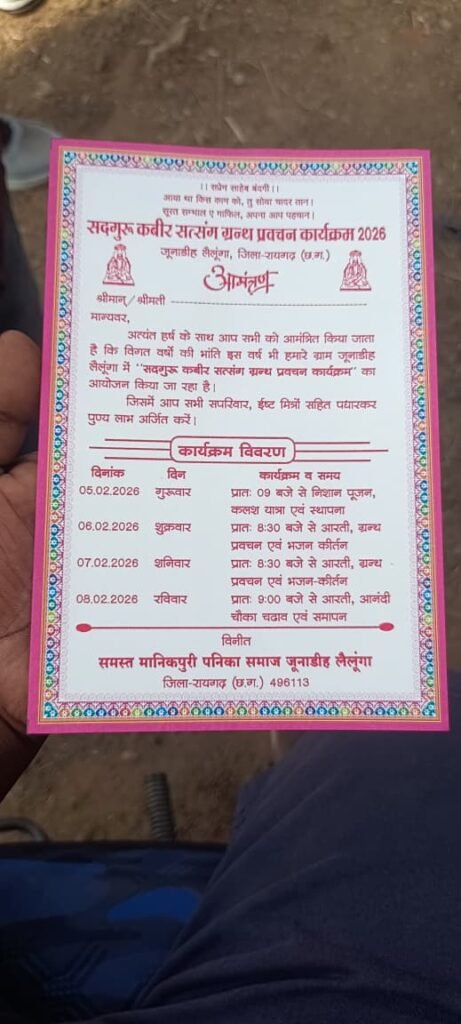 ।। सप्रेम साहेब बंदगी ।।
आया था किस काम को, तु सोया चादर तान।
सूरत सम्भाल ए गाफिल, अपना आप पहचान।
सदगुरू कबीर सत्संग ग्रन्थ प्रवचन कार्यक्रम 2026
जूनाडीह लैलूंगा, जिला-रायगढ़ (छ.ग.)
आमंत्रण
श्रीमान्/श्रीमती
मान्यवर,
अत्यंत हर्ष के साथ आप सभी को आमंत्रित किया जाता
है कि विगत वर्षो की भांति इस वर्ष भी हमारे ग्राम जूनाडीह
लैलूंगा में "सदगुरू कबीर सत्संग ग्रन्थ प्रवचन कार्यक्रम" का
आयोजन किया जा रहा है।
जिसमें आप सभी सपरिवार, ईष्ट मित्रों सहित पधारकर
पुण्य लाभ अर्जित करें।
कार्यक्रम विवरण
दिनांक दिन कार्यक्रम व समय
05.02.2026 गुरूवार प्रातः 09 बजे से निशान पूजन,
कलश यात्रा एवं स्थापना
06.02.2026 शुक्रवार प्रातः 8:30 बजे से आरती, ग्रन्थ
प्रवचन एवं भजन कीर्तन
07.02.2026 शनिवार प्रातः 8:30 बजे से आरती, ग्रन्थ
प्रवचन एवं भजन-कीर्तन
08.02.2026 रविवार प्रातः 9:00 बजे से आरती, आनंदी
चौका चढाव एवं समापन
विनीत
समस्त मानिकपुरी पनिका समाज जूनाडीह लैलूंगा
जिला-रायगढ़ (छ.ग.) 496113